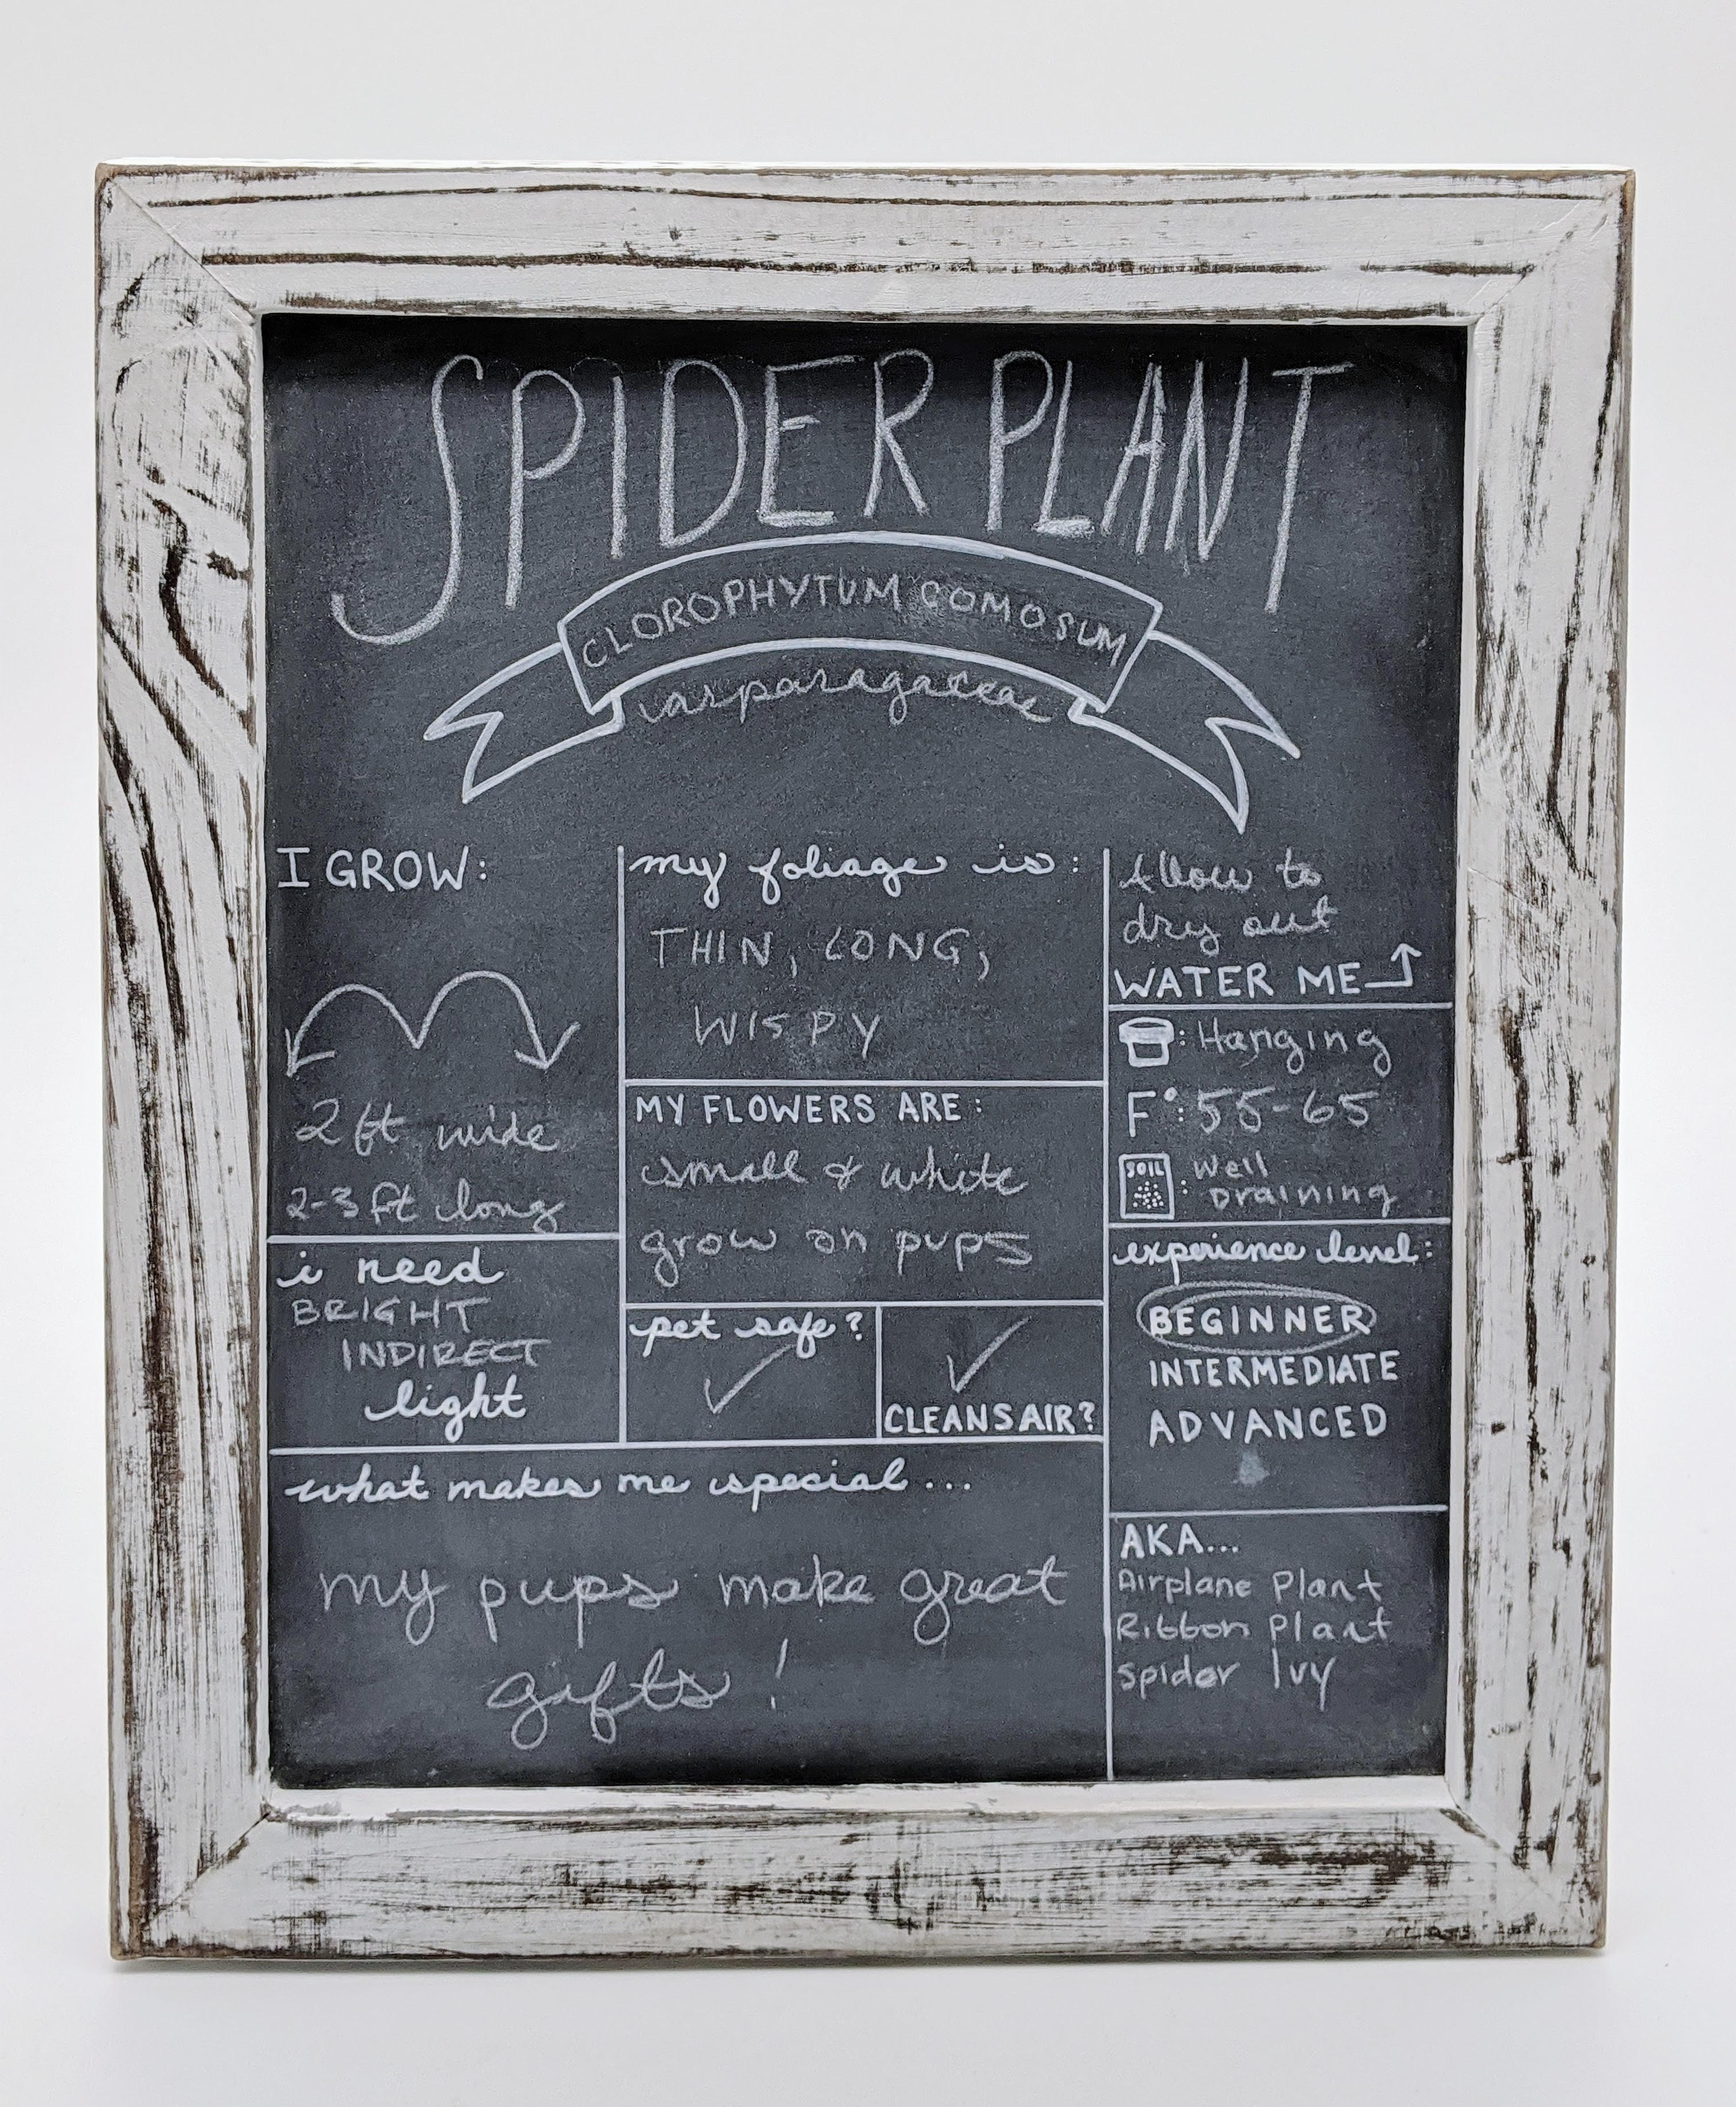 SPIDER PLANT
CLOROPHYTUM COMOSUM
asparagaceae
I GROW:
2 ft wide
2-3 ft long
i need
BRIGHT
INDIRECT
light
my foliage is:
THIN, LONG,
WISPY
MY FLOWERS ARE:
small & white
grow on pups
pet safe?
CLEANS AIR?
what makes me special...
my pups make great
gifts!
Allow to
dry out
WATER ME
: Hanging
F°: 55-65
SOIL
: Well
Draining
experience level:
BEGINNER
INTERMEDIATE
ADVANCED
AKA...
Airplane Plant
Ribbon Plant
Spider Ivy